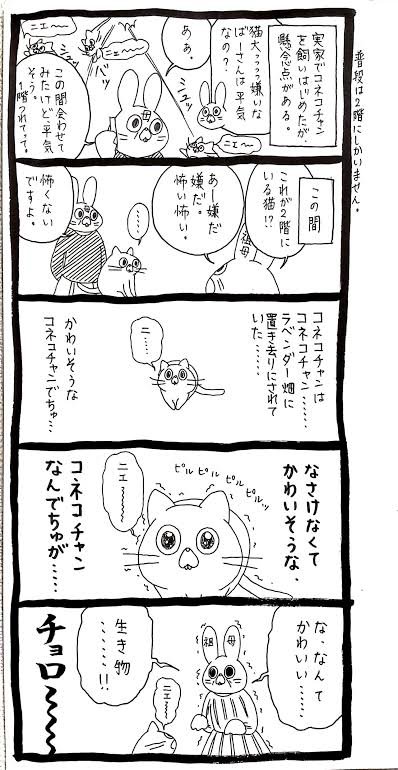 普段は2階にしかいません。
実家でコネコチャン
を飼いはじめたが、
懸念点がある。
猫犬っっっ嫌いな
ばーさんは平気
なの？
ああ。
この間会わせて
みたけど平気
そう。
1階つれてって。
母
シュッ
シュッ
ニェ〜〜
ニェ〜〜
この間
これが2階に
いる猫!?
祖母
あー嫌だ
嫌だ。
怖い怖い。
……
怖くない
ですよ。
コネコチャンは
コネコチャン……
ラベンダー畑に
置き去りにされて
いた……
ニ……
かわいそうな
コネコチャンでちゅ…
なさけなくて
かわいそうな、
ピルピルピルピルッ
ニェ〜〜〜
コネコチャン
なんでちゅが……
な、なんて
かわいい……
祖母
生き物
……!!
ニェ〜〜
チョロ〜〜